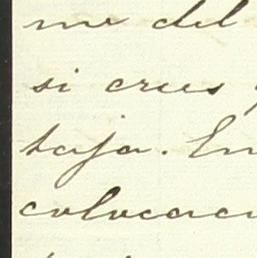 me del
si crees
taja. En
colocaci